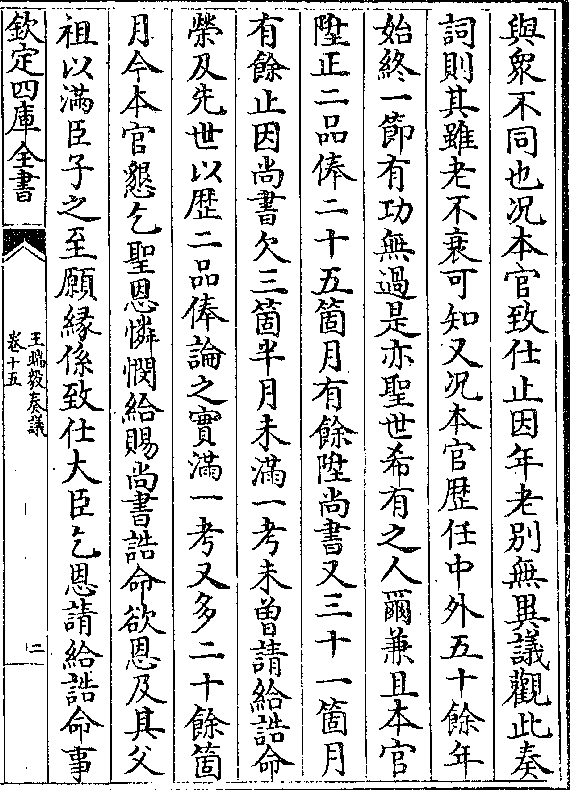 與衆不同也况本官致仕止因年老别無異議觀此奏
詞則其雖老不衰可知又况本官歴任中外五十餘年
始終一節有功無過是亦聖世希有之人爾兼且本官
陞正二品俸二十五箇月有餘陞尚書又三十一箇月
有餘止因尚書欠三箇半月未滿一考未曽請給誥命
榮及先世以歴二品俸論之實滿一考又多二十餘箇
月今本官懇乞聖恩憐憫給賜尚書誥命欲恩及其父
祖以滿臣子之至願縁係致仕大臣乞恩請給誥命事
欽定四庫全書
王端毅奏議
卷十五
二